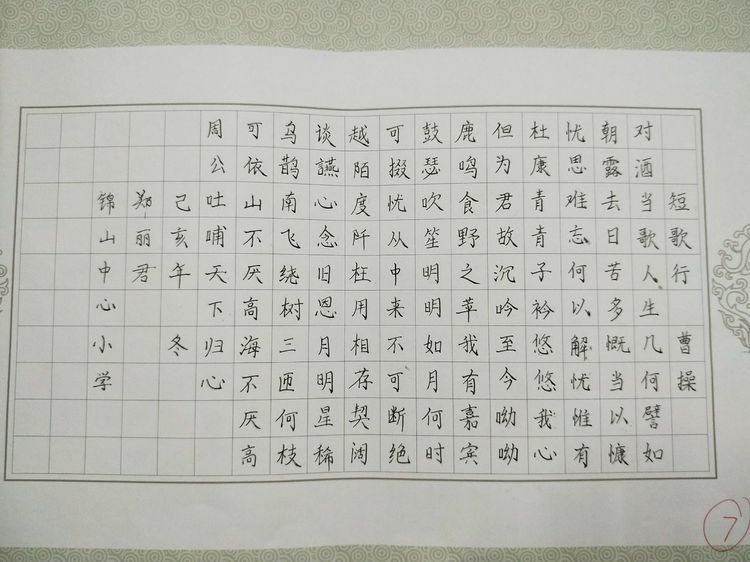 短歌行 曹操
对酒当歌人生几何譬如
朝露去日苦多慨当以慷
忧思难忘何以解忧惟有
杜康青青子衿悠悠我心
但为君故沉吟至今呦呦
鹿鸣食野之苹我有嘉宾
鼓瑟吹笙明明如月何时
可掇忧从中来不可断绝
越陌度阡枉用相存契阔
谈讌心念旧恩月明星稀
乌鹊南飞绕树三匝何枝
可依山不厌高海不厌高
周公吐哺天下归心
己亥年 冬
郑丽君
锦山中心小学
7